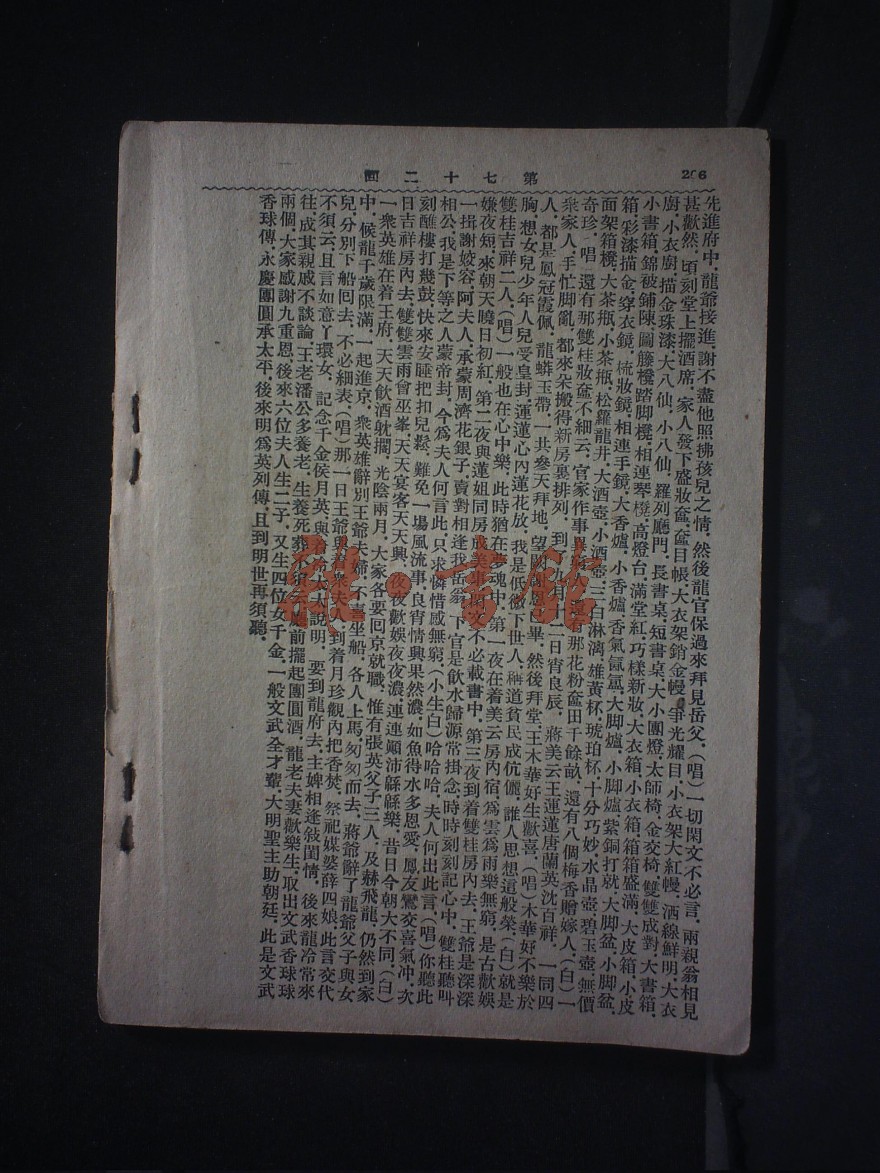 206
第七十二回
先進府中，龍爺接進，謝不盡他照拂孩兒之情，然後龍官保過來拜見岳父，（唱）一切閑文不必言，兩親翁相見
甚歡然，頃刻堂上擺酒席，家人發下盛妝奩，奩目帳，大衣架銷金幔，爭光耀目，小衣架大紅幔，洒線鮮明，大衣
廚，小衣廚，描金珠漆，大八仙，小八仙，羅列廳門，長書桌，短書桌，大小團燈，太師椅，金交椅，雙雙成對，大書箱，
小書箱，錦被鋪陳，圓籐櫈，踏脚櫈，相連琴櫈，高燈台，滿堂紅，巧樣新妝，大衣箱，小衣箱，箱箱盛滿，大皮箱，小皮
箱，彩漆描金，穿衣鏡，梳妝鏡，相連手鏡，大香爐，小香爐，香氣氤氳，大脚爐，小脚爐，紫銅打就，大脚盆，小脚盆，
面架箱櫈，大茶瓶，小茶瓶，松蘿龍井，大酒壺，小酒壺，三 淋漓，雄黃杯，琥珀杯，十分巧妙，水晶壺，碧玉壺，無價
奇珍，（唱）還有那雙桂妝奩不細云，官家作事 那花粉奩田千餘畝，還有八個梅香贈嫁人，（白）一
衆家人，手忙脚亂，都來朵搬得新房裏排列，到 二日宵良辰，蔣美云王運蓮唐蘭英沈百祥，一同四
人，都是鳳冠霞佩，龍蟒玉帶，一共叁天拜地，望闕 畢，然後拜堂，王木華好生歡喜，（唱）木華好不樂於
胸，想女兒少年人兒受皇封，運蓮心內蓮花放，我是低微下世人，稱道貧民成伉儷，誰人思想這般榮，（白）就是
雙桂吉祥二人，（唱）一般也在心中樂，此時猶在夢魂中，第一夜在着美云房內宿，為雲為雨樂無窮，是古歡娛
嫌夜短，來朝天曉日初紅，第二夜與蓮姐同房 不必載書中，第三夜到着雙桂房內去，王爺是深深
一揖謝姣容，阿夫人，承蒙周濟花銀子，賣對相逢我岳翁，下官是飲水歸源常掛念，時時刻刻記心中，雙桂聽叫
相公，我是下等之人蒙帝封，今為夫人何言此，只求憐惜感無窮，（小生白）哈哈哈，夫人何出此言，（唱）你聽此
刻譙樓打幾鼓，快來安睡把扣兒鬆，難免一場風流事，良宵情興果然濃，如魚得水多恩愛，鳳友鸞交喜氣冲，次
日吉祥房內去，雙雙雲雨會巫峯，天天宴客天天興，夜夜歡娛夜夜濃，連連顚沛緜緜樂，昔日今朝大不同，（白）
一衆英雄在着王府，天天飲酒躭擱，光陰兩月，大家各要囘京就職，惟有張英父子三人，及赫飛龍，仍然到家
中，候龍千歲限滿，一起進京，衆英雄辭別王爺夫婦，不喜坐船，各人上馬，匆匆而去，蔣爺辭了龍爺父子與女
兒，分別下船囘去，不必細表，（唱）那一日王爺與着衆夫人，到着月珍觀內把香焚，祭祀媒婆薛四娘，此言交代
不須云，且言如意丫環女，記念千金侯月英，與着 說明，要到龍府去，主婢相逢敍閨情，後來龍冷常來
往，成其親戚不談論，王老潘公多養老，生養死葬 前擺起團圓酒，龍老夫妻歡樂生，取出文武香球球
兩個，大家感謝九重恩，後來六位夫人生二子，又生四位女千金，一般文武全才輩，大明聖主助朝廷，此是文武
香球傳，永慶團圓承太平，後來明為英列傳，且到明世再須聽。
雜·書館